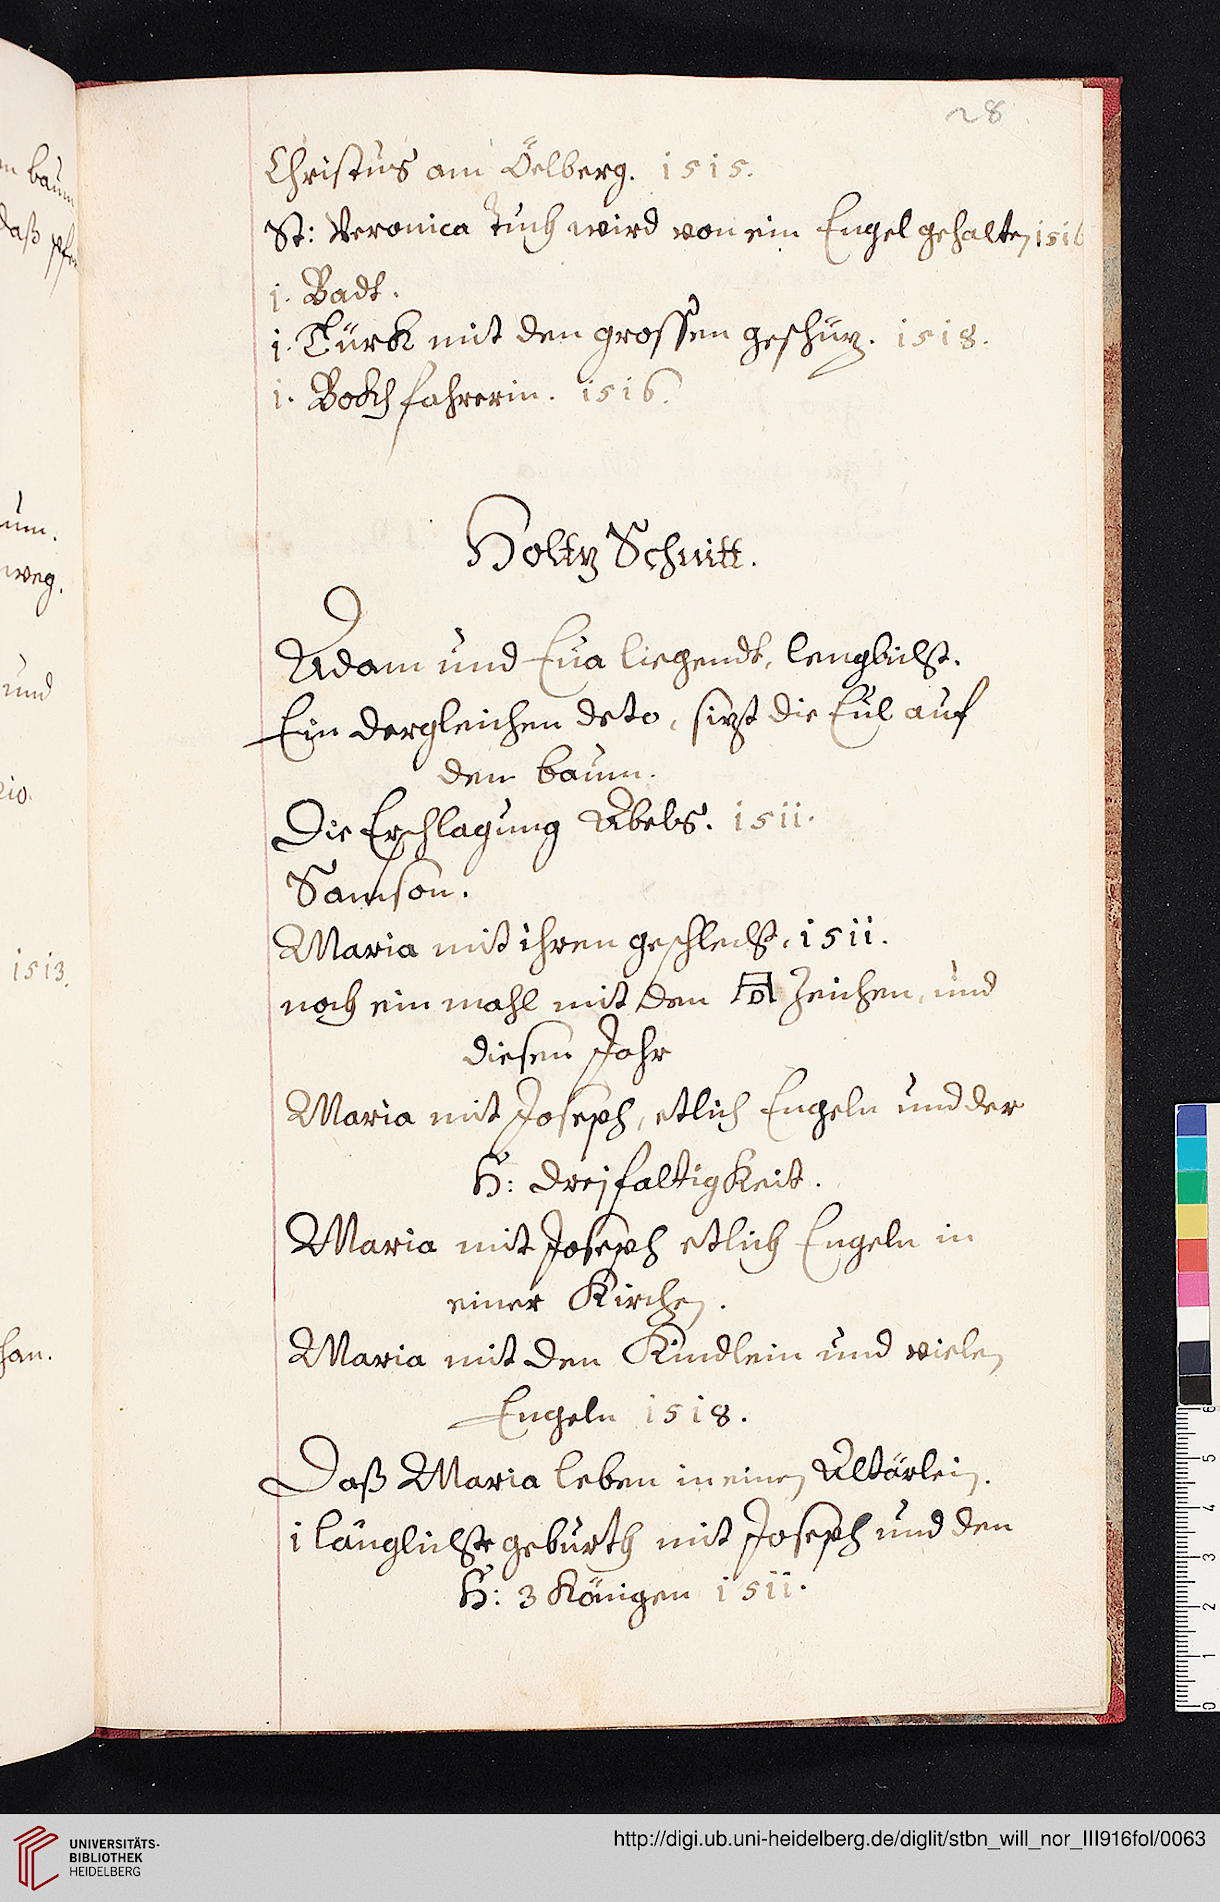 28
Christus am Öelberg. 1515.
St: Veronica Tuch wird von ein Engel gehalten 1516
1. Badt.
1. Türk mit den grossen geschüz. 1518.
1. Bockfahrerin. 1516.
Holtz Schnitt.
Adam und Eua liegendt, lenglichst.
Ein dergleichen deto, sizt die Eül auf
den baum.
Die Erschlagung Abels. 1511.
Samson.
Maria mit ihren geschlecht. 1511.
noch ein mahl mit den AD Zeichen, und
diesen Jahr
Maria mit Joseph, etlich Engeln und der
H: dreyfaltigkeit.
Maria mit Joseph etlich Engeln in
einer Kirchen.
Maria mit den Kindlein und vielen
Engeln 1518.
Daß Maria leben in einen Altärlein.
1 länglichste geburth mit Joseph und den
H: 3 Königen 1511.
n baum
daß
um.
weg.
und
1513.
han.
UNIVERSITÄTS-
BIBLIOTHEK
HEIDELBERG
http://digi.ub.uni-heidelberg.de/diglit/stbn_will_nor_III916fol/0063
6
5
4
3
2
1
0